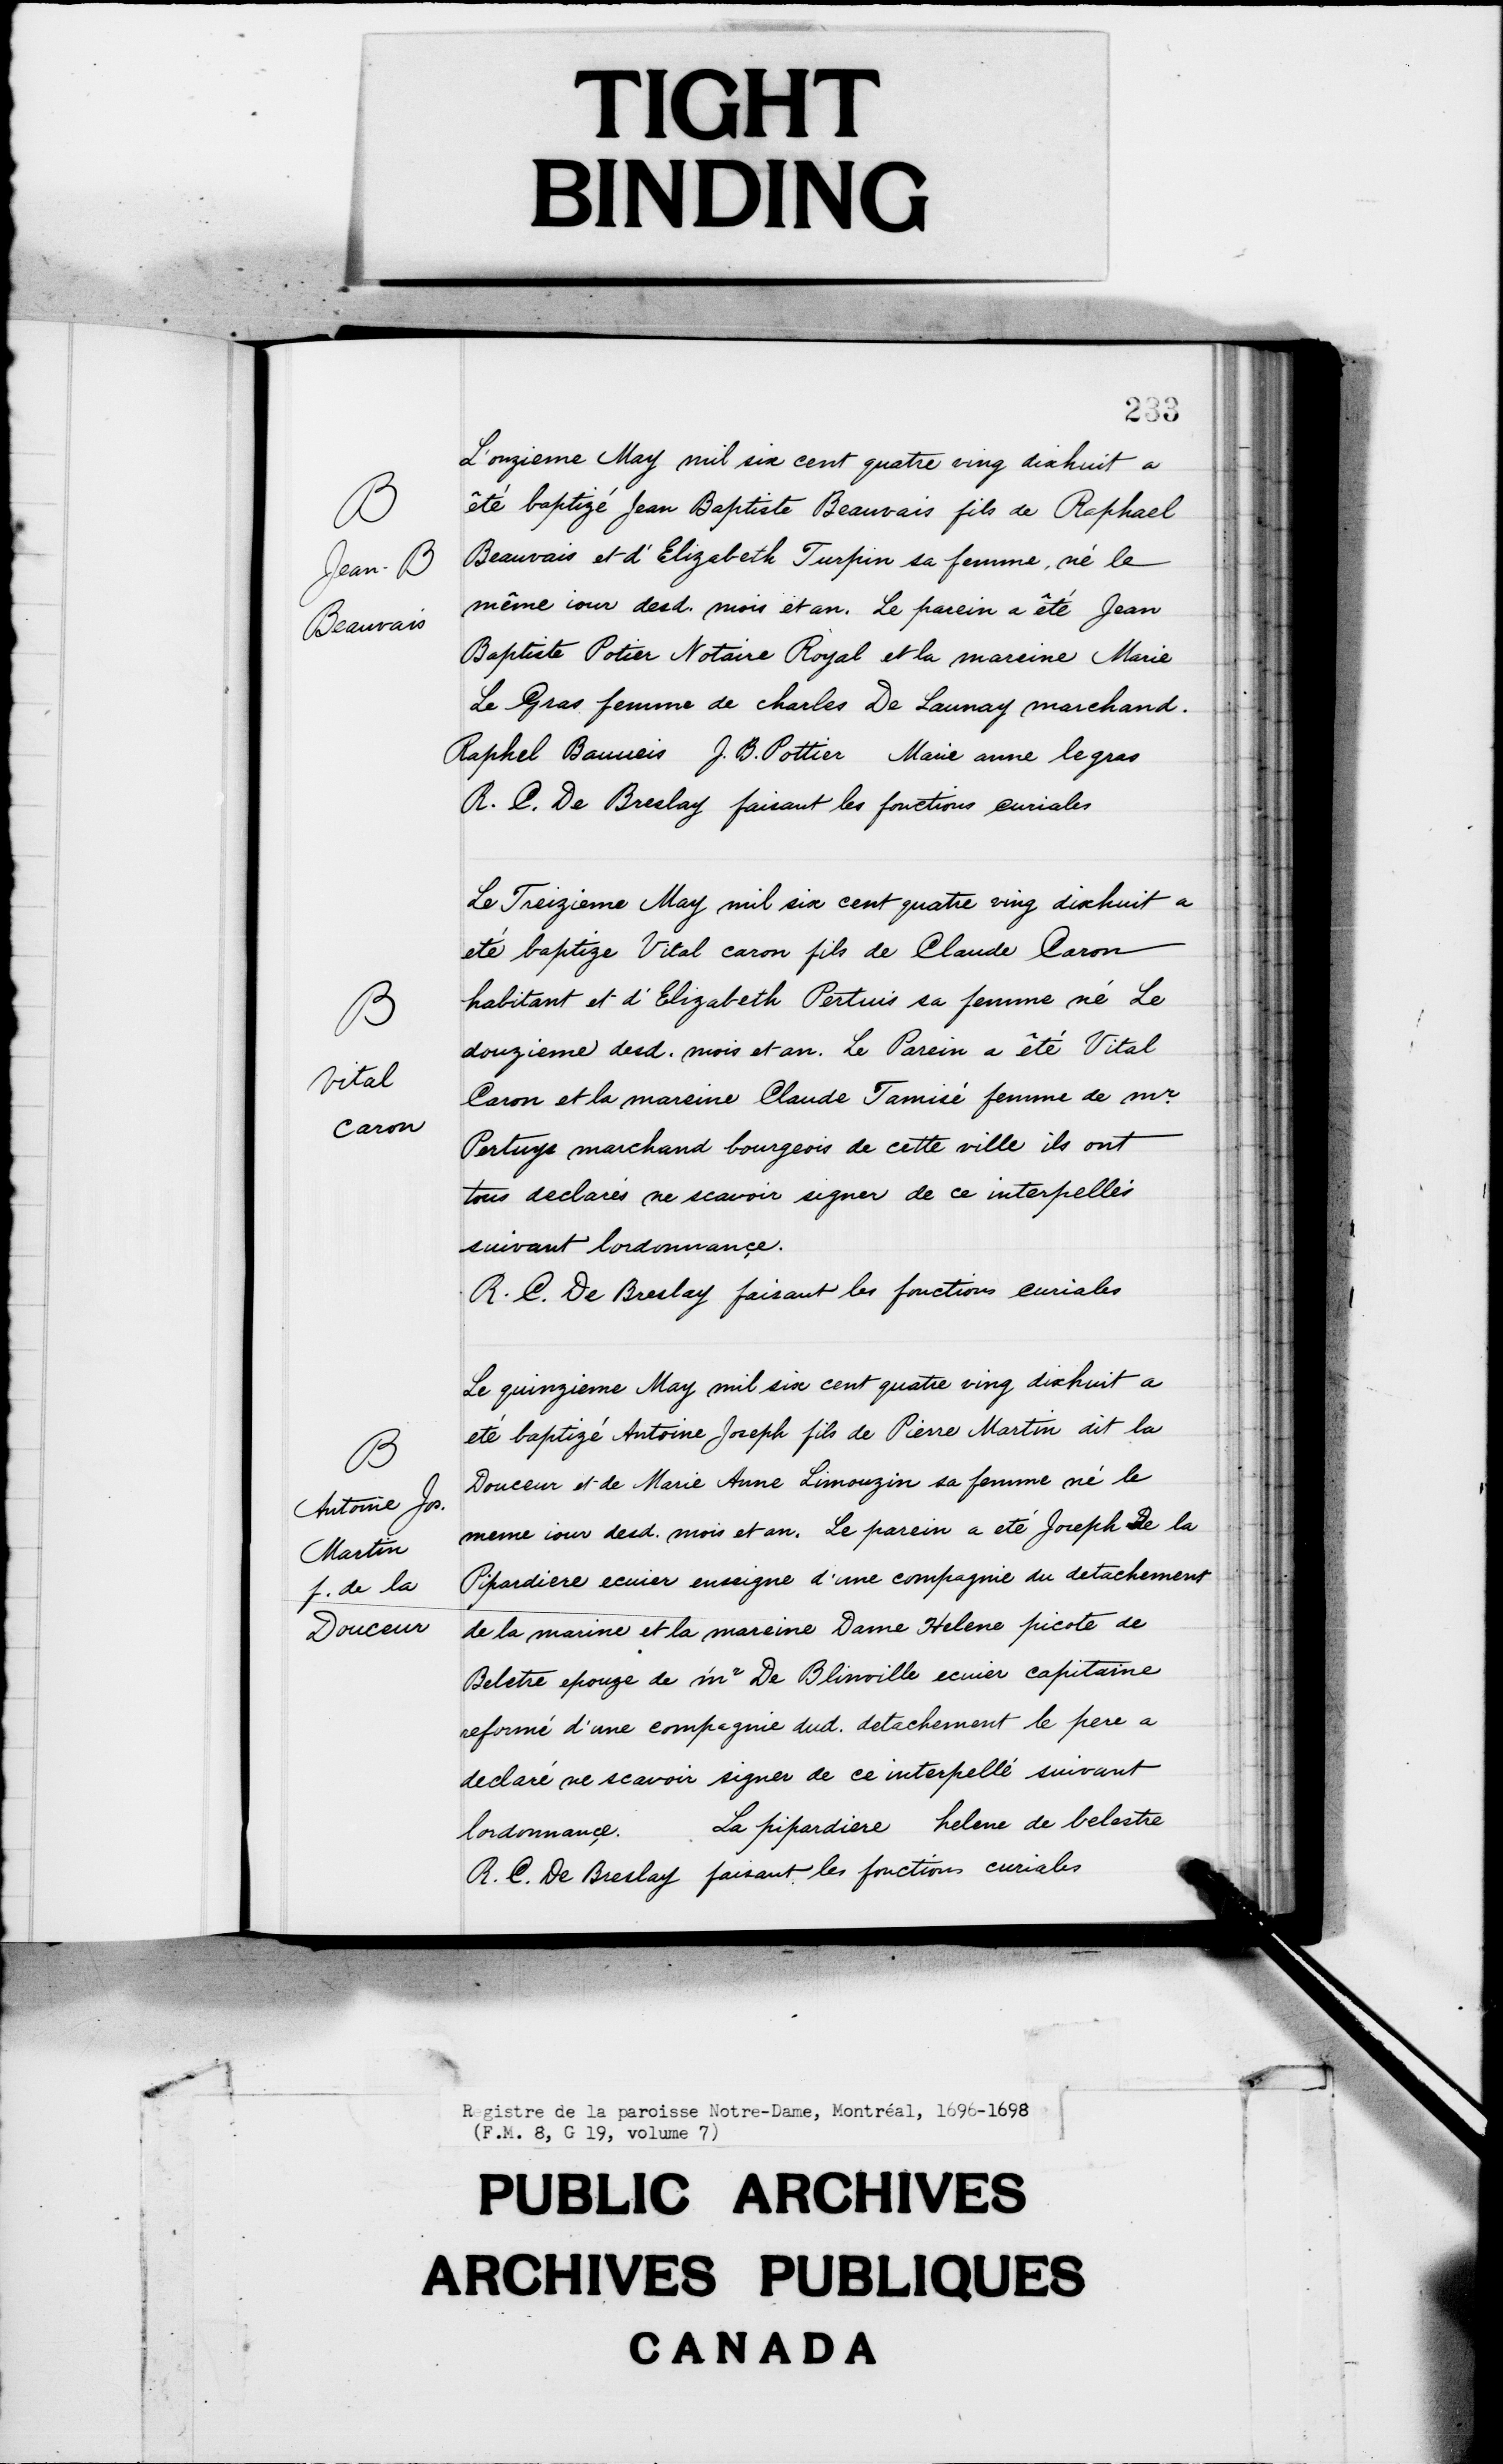 TIGHT
BINDING
233
B
Jean-B
Beauvais
L'onzieme May mil six cent quatre ving dixhuit a
êté baptizé Jean Baptiste Beauvais fils de Raphael
Beauvais et d'Elizabeth Turpin sa femme, né le
même iour desd. mois et an. Le parein a êté Jean
Baptiste Potier Notaire Royal et la mareine Marie
Le Gras femme de charles De Launay marchand.
Raphel Bauueis J. B. Pottier Marie anne legras
R. C. De Breslay faisant les fonctions curiales
B
Vital
Caron
Le Treizieme May mil six cent quatre ving dixhuit a
eté baptize Vital caron fils de Claude Caron
habitant et d'Elizabeth Pertuis sa femme né Le
douzieme desd. mois et an. Le Parein a êté Vital
Caron et la mareine Claude Tamisé femme de mr.
Pertuys marchand bourgeois de cette ville ils ont
tous declarés ne scavoir signer de ce interpellés
suivant lordonnançe.
R. C. De Breslay faisant les fonctions curiales
B
Antoine Jos.
Martin
f. de la
Douceur
Le quinzieme May mil six cent quatre ving dixhuit a
eté baptizé Antoine Joseph fils de Pierre Martin dit la
Douceur et de Marie Anne Limouzin sa femme né le
meme iour desd. mois et an. Le parein a eté Joseph De la
Pipardiere ecuier enseigne d'une compagnie du detachement
de la marine et la mareine Dame Helene picote de
Beletre epouze de mr De Blinville ecuier capitaine
reformé d'une compagnie dud. detachement le pere a
declaré ne scavoir signer de ce interpellé suivant
lordonnançe. La pipardiere helene de belestre
R. C. De Breslay faisant les fonctions curiales
Registre de la paroisse Notre-Dame, Montréal, 1696-1698
(F.M. 8, G 19, volume 7)
PUBLIC ARCHIVES
ARCHIVES PUBLIQUES
CANADA